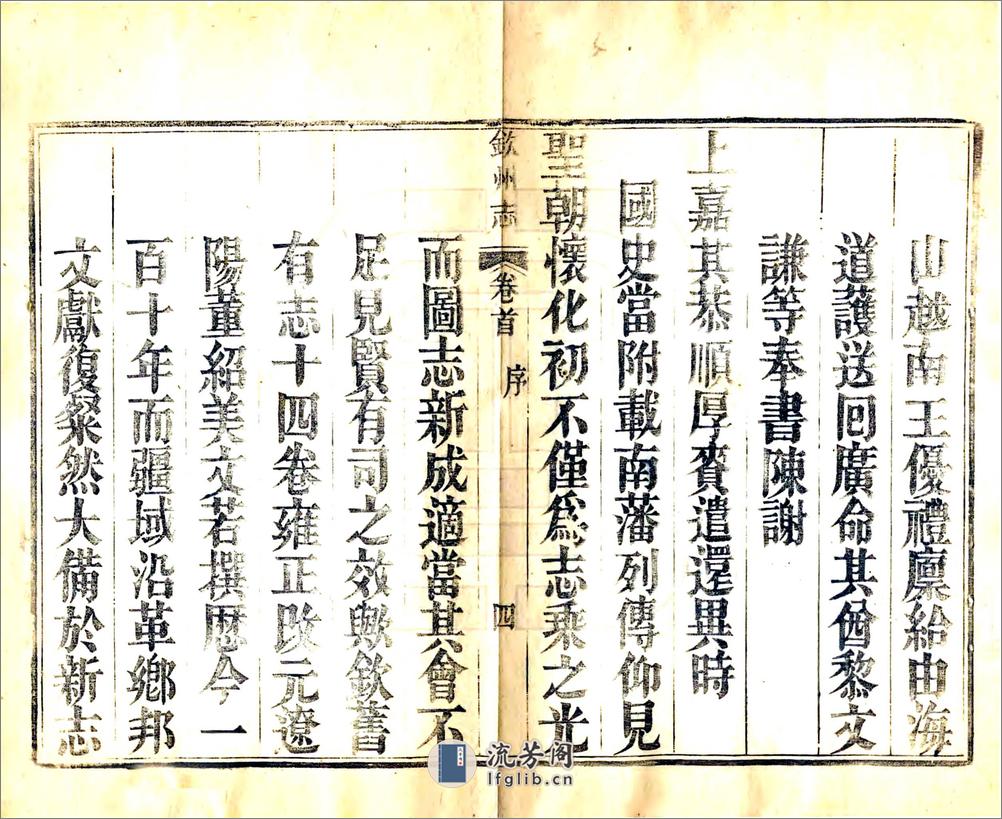 山越南王優禮廪給由海
道護送回廣命其酋黎文
謙等奉書陳謝
上嘉其恭順厚賚遣還異時
國史當附載南藩列傳仰見
聖朝懷化初不僅爲志乘之光
欽州志 卷首 序 四
而圖志新成適當其會不
足見賢有司之效歟欽舊
有志十四卷雍正改元遼
陽董紹美文若撰歴今一
百十年而疆域沿革鄉邦
文獻復粲然大備於新志
流芳阁
lfglib.cn